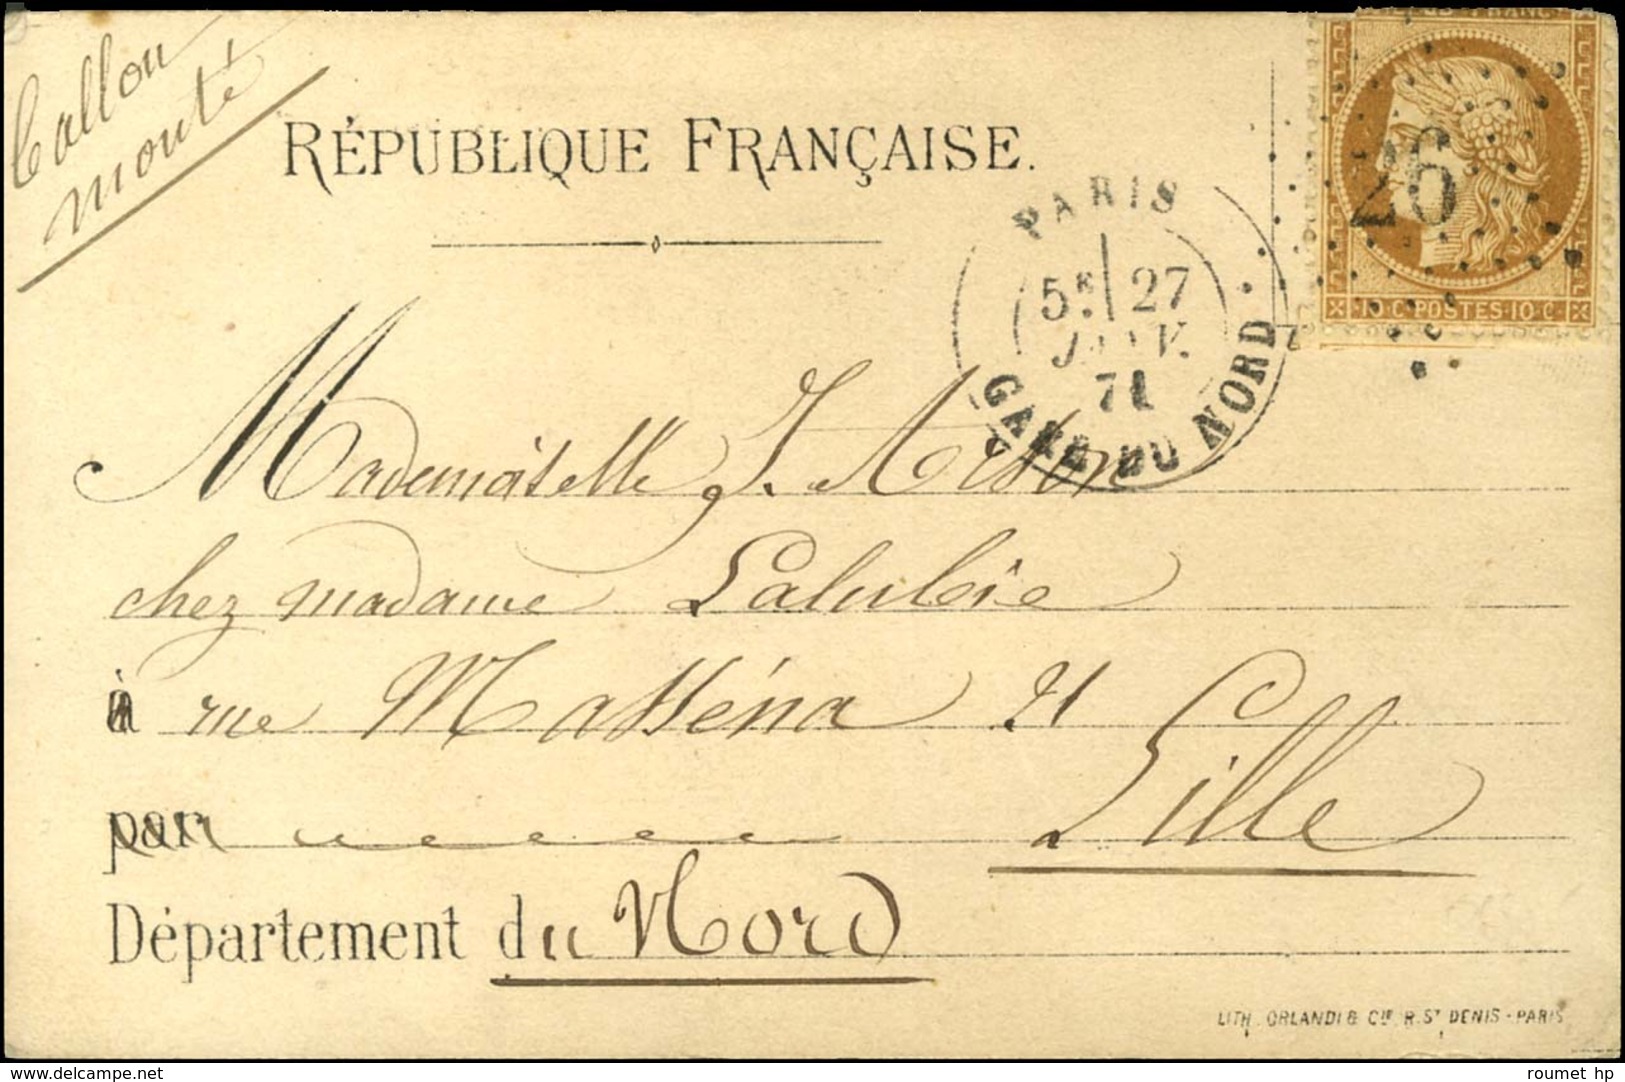 Ballon
monté
RÉPUBLIQUE FRANÇAISE.
PARIS
5E 27
JANV.
71
GARE DU NORD
26
10 C POSTES 10 C
Mademoiselle J. Arson
chez madame Lalubie
à rue Masséna 21
par Lille
Département du Nord
LITH. ORLANDI & CIE R. ST DENIS - PARIS
roumet hp